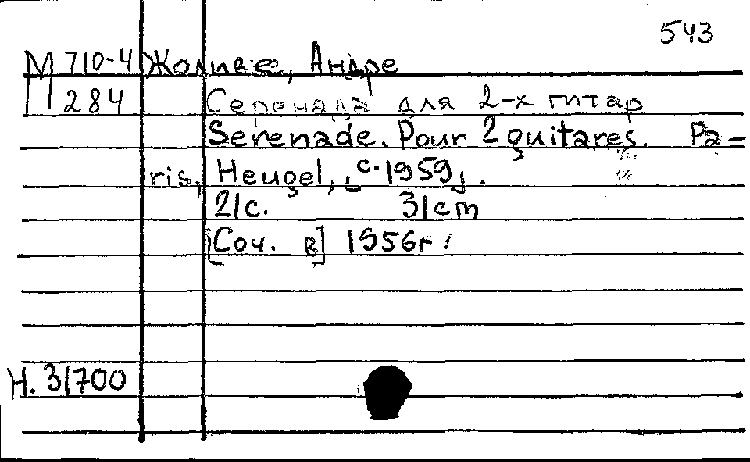 543
М 710-4 Жоливе, Андре
284 Серенада для 2-х гитар
Serenade. Pour 2 guitares. Pa-
ris, Heugel, [c. 1959].
21с. 31cm
[Соч. в] 1956г.
Н. 31700